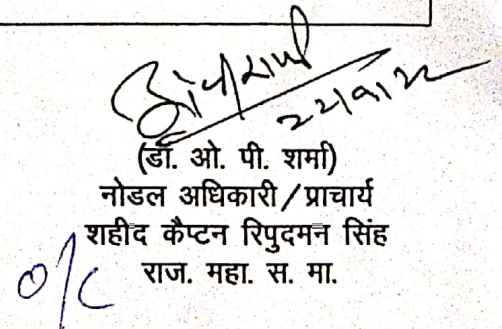 (डॉ. ओ. पी. शर्मा)
नोडल अधिकारी / प्राचार्य
शहीद कैप्टन रिपुदमन सिंह
राज. महा. स. मा.
O/C